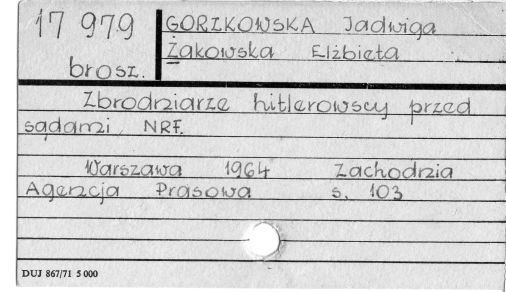 17 979 GORZKOWSKA Jadwiga
Żakowska Elżbieta
brosz.
Zbrodniarze hitlerowscy przed
sądami NRF.
Warszawa 1964 Zachodnia
Agencja Prasowa s. 103
DUJ 867/71 5 000